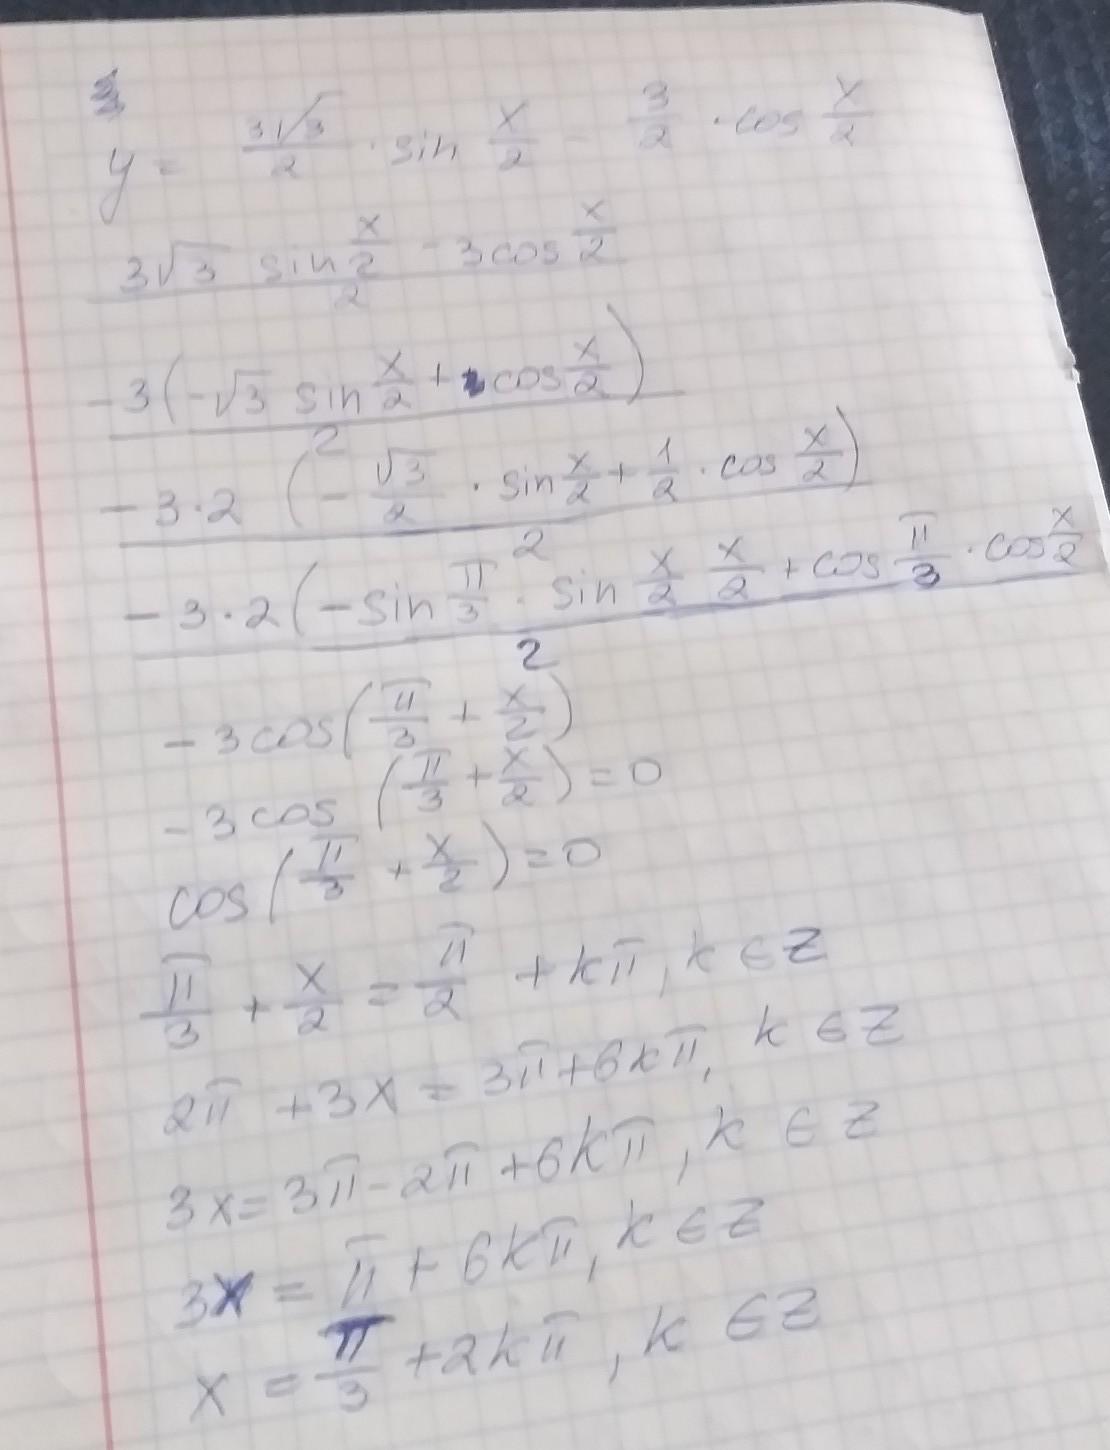 3
y = 3√3/2 · sin x/2 - 3/2 · cos x/2
3√3 sin x/2 - 3 cos x/2 / 2
-3(-√3 sin x/2 + cos x/2) / 2
-3·2 (-√3/2 · sin x/2 + 1/2 · cos x/2) / 2
-3·2(-sin π/3 · sin x/2 x/2 + cos π/3 · cos x/2 / 2
-3cos(π/3 + x/2)
-3cos (π/3 + x/2) = 0
cos(π/3 + x/2) = 0
π/3 + x/2 = π/2 + kπ, k ∈ Z
2π + 3x = 3π + 6kπ, k ∈ Z
3x = 3π - 2π + 6kπ, k ∈ Z
3x = π + 6kπ, k ∈ Z
x = π/3 + 2kπ, k ∈ Z